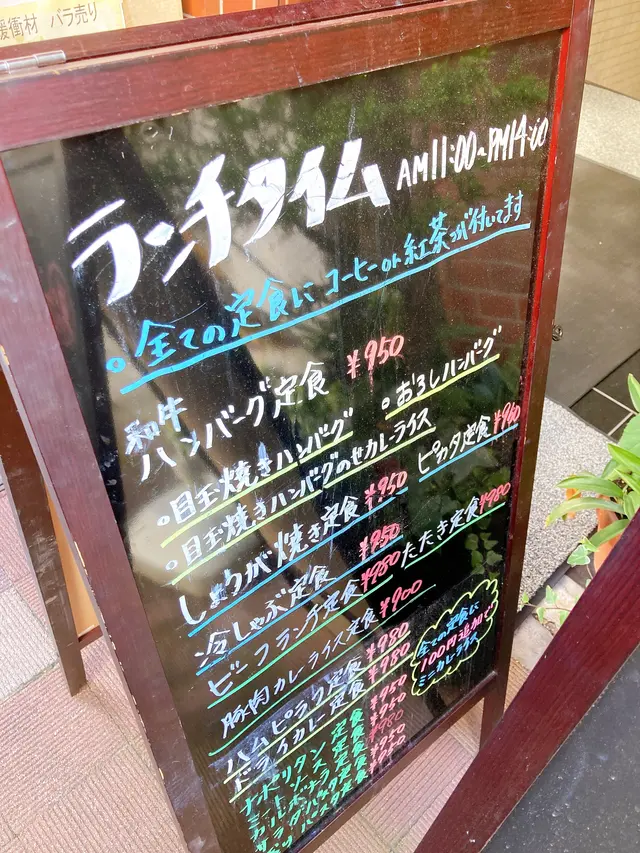 緩衝材 バラ売り
ランチタイム AM11:00~PM14:00
○全ての定食に コーヒーor紅茶が付いてます
和牛
ハンバーグ定食 ¥950
○目玉焼きハンバーグ ○おろしハンバーグ
○目玉焼きハンバーグのせカレーライス
しょうが焼き定食 ¥950 ピカタ定食
冷しゃぶ定食 ¥950 たたき定食 ¥980
ビーフランチ定食 ¥980
豚肉カレーライス定食 ¥900
ハムピラフ定食 ¥980
ドライカレー定食 ¥980
全ての定食に
100円追加で
ミニカレーライス
ナポリタン定食 ¥950
ミートソース定食 ¥950
カルボナーラ定食 ¥980
サラダパスタ定食 ¥950
パスタ定食 ¥950